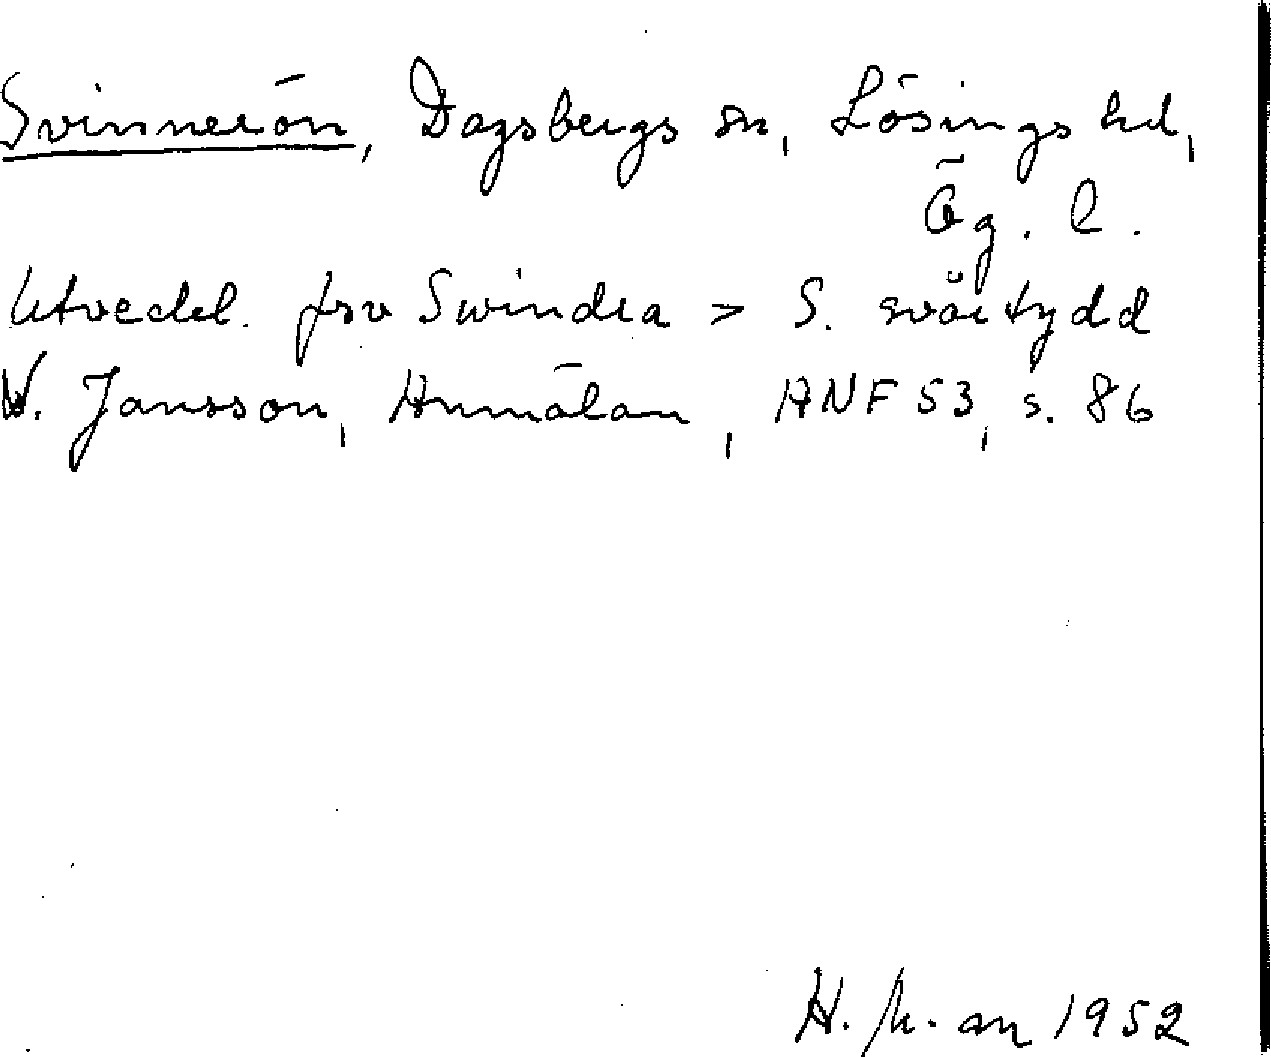 Svinnerön, Dagsbergs sn, Lösings hd,
Ög. l.
Utveckl. frv Swindra > S. svårtydd
V. Jansson, Anmälan, ANF 53, s. 86
H. .an 1952